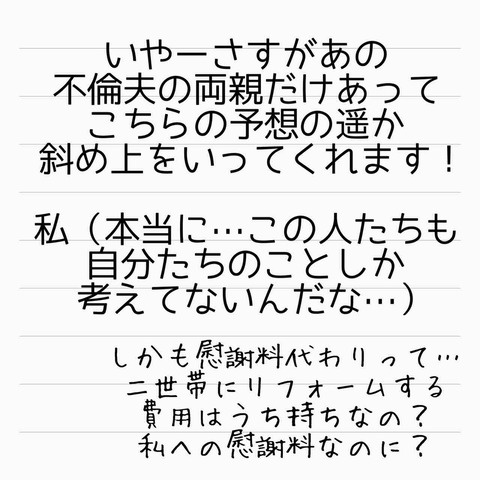 いやーさすがあの
不倫夫の両親だけあって
こちらの予想の遥か
斜め上をいってくれます！
私（本当に…この人たちも
自分たちのことしか
考えてないんだな…）
しかも慰謝料代わりって…
二世帯にリフォームする
費用はうち持ちなの？
私への慰謝料なのに？